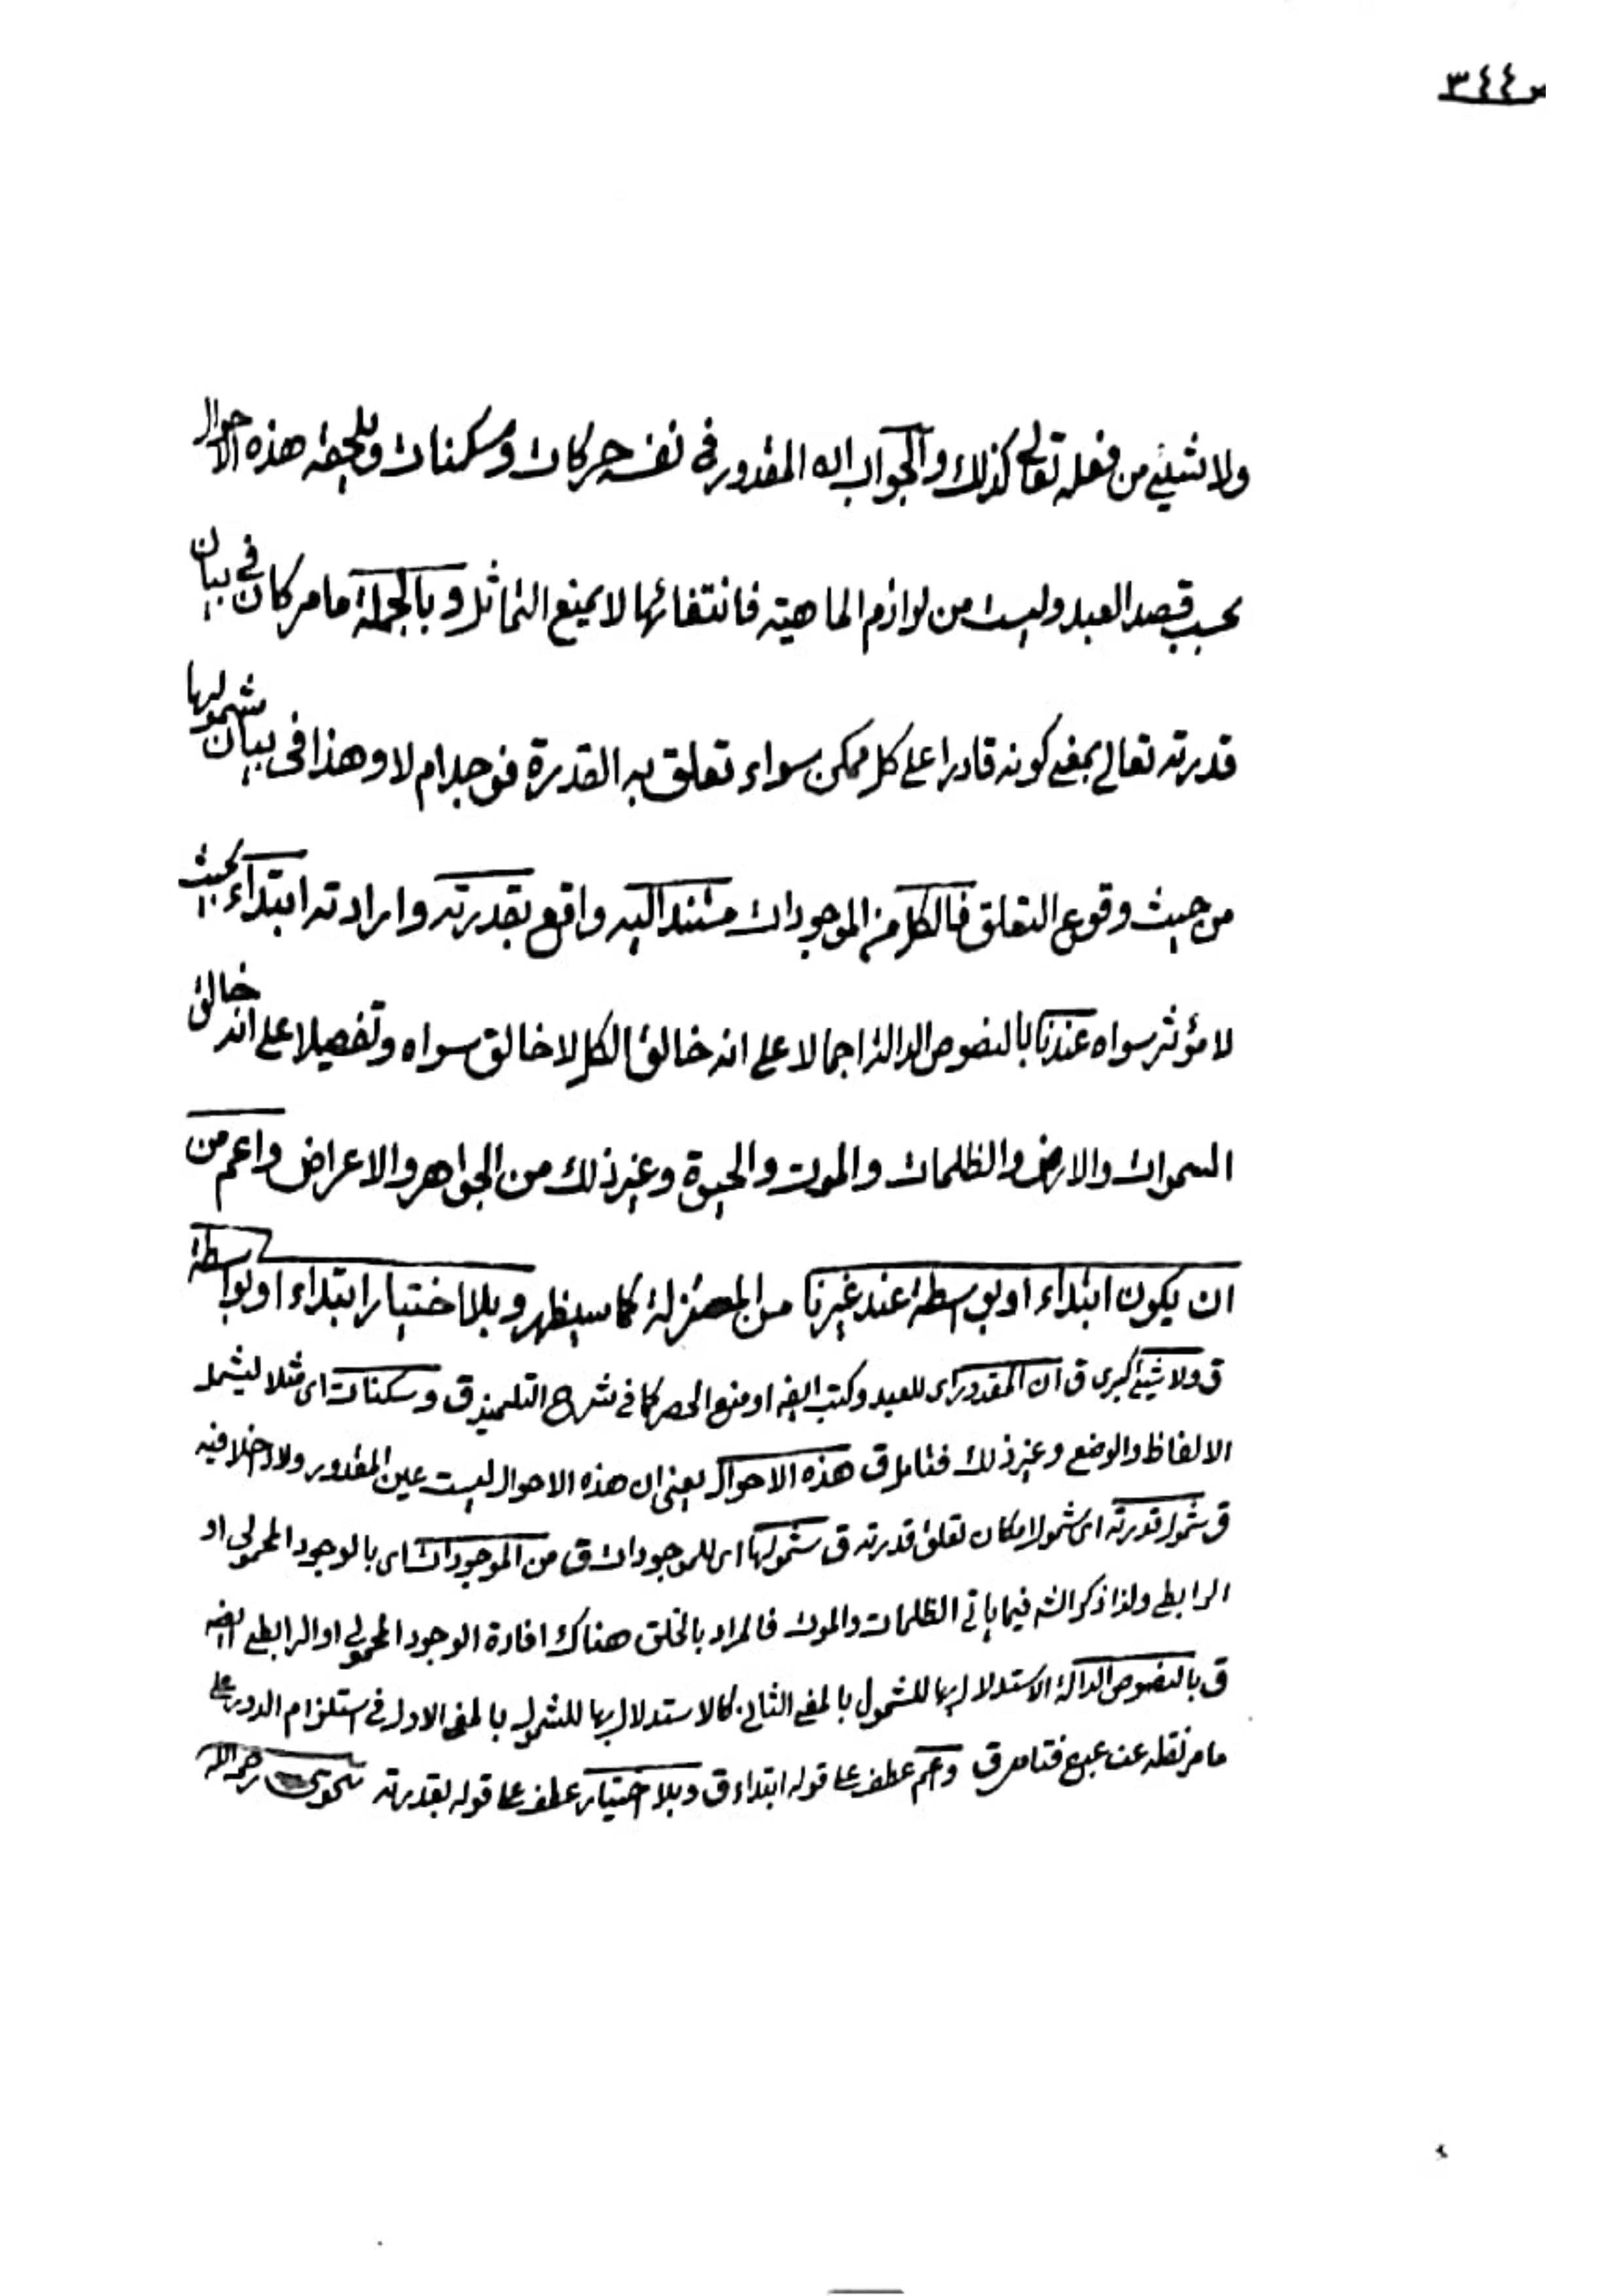 ص ٣٤٤
ولا شيئ من فعله تعالى كذلك والجواب ان المقدور فى نفسه حركات وسكنات ويلحقه هذه الاحوال
بحسب قصد العبد وليست من لوازم الماهية فانتفائها لا يمنع التماثل وبالجملة ما مر كان فى بيان
قدرته تعالى بمعنى كونه قادرا على كل ممكن سواء تعلق به القدرة فوجد ام لا وهذا فى بيان شمولها
من حيث وقوع التعلق فالكل من الموجودات مستند اليه واقع بقدرته وارادته ابتداء بحيث
لا مؤثر سواه عندنا بالنصوص الدالة اجمالا على انه خالق الكل لا خالق سواه وتفصيلا على انه خالق
السموات والارض والظلمات والموت والحيوة وغير ذلك من الجواهر والاعراض واعم من
ان يكون ابتداء او بواسطة عند غيرنا من المعتزلة كما سيظهر وبلا اختيار ابتداء او بواسطة
ق ولا شيئ كبرى ق ان المقدور اى للعبد وكتب ايضا او منع الحصر كما فى شرح التلميذ ق وسكنات اى مثلا ليشمل
الالفاظ والوضع وغير ذلك فتامل ق هذه الاحوال يعنى ان هذه الاحوال ليست عين المقدور ولا داخلا فيه
ق شمول قدرته اى شمول امكان تعلق قدرته ق شمولها اى للموجودات ق من الموجودات اى بالوجود المحمولى او
الرابطى ولذا ذكر الشه فيما ياتى الظلمات والموت فالمراد بالخلق هناك افادة الوجود المحمولى او الرابطى ايضا
ق بالنصوص الدالة الاستدلال بها للشمول بالمعنى الثانى كالاستدلال بها للشمول بالمعنى الاول فى استلزام الدور على
ما مر نقله عن عبع فتامل ق واعم عطف على قوله ابتداء ق وبلا اختيار عطف على قوله بقدرته رحمه الله